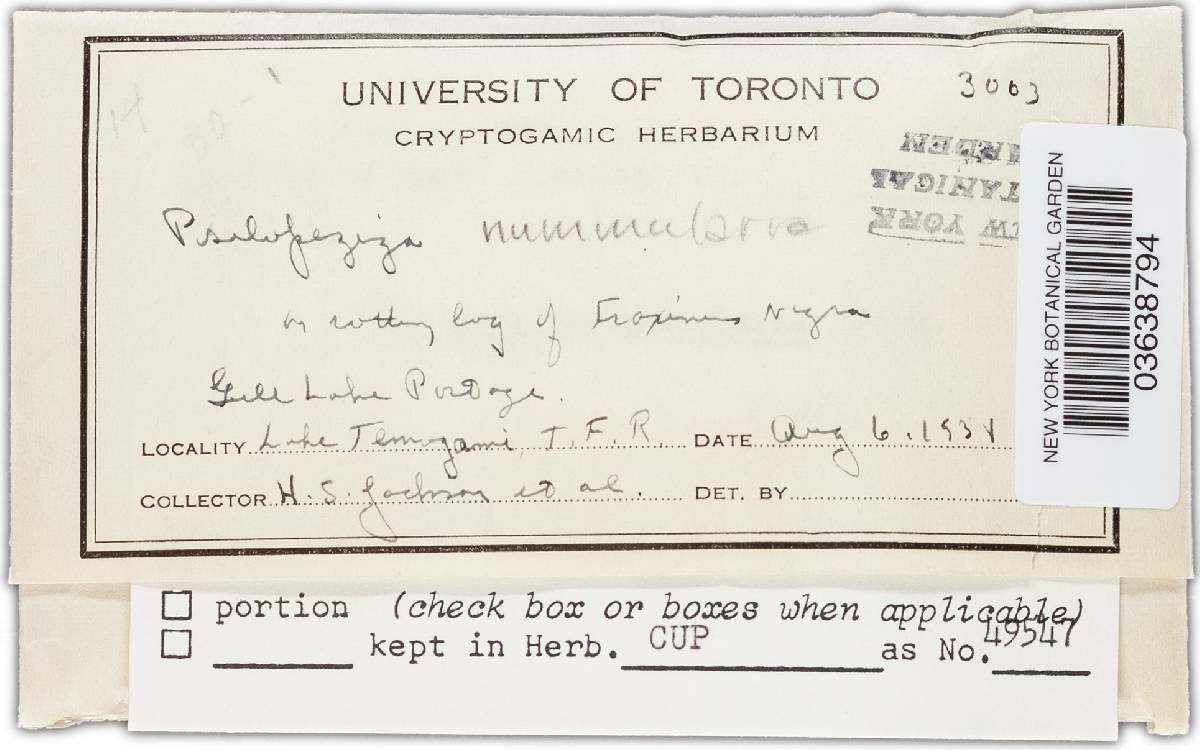 UNIVERSITY OF TORONTO 3003
CRYPTOGAMIC HERBARIUM
NEW YORK
BOTANICAL
GARDEN
Psilopeziza nummularia
on rotting log of Fraxinus nigra
Gull Lake Portage.
LOCALITY Lake Temagami, T.F.R. DATE Aug 6, 193
COLLECTOR H. S. Jackson et al. DET. BY
NEW YORK BOTANICAL GARDEN
03638794
portion (check box or boxes when applicable)
kept in Herb. CUP as No. 49547